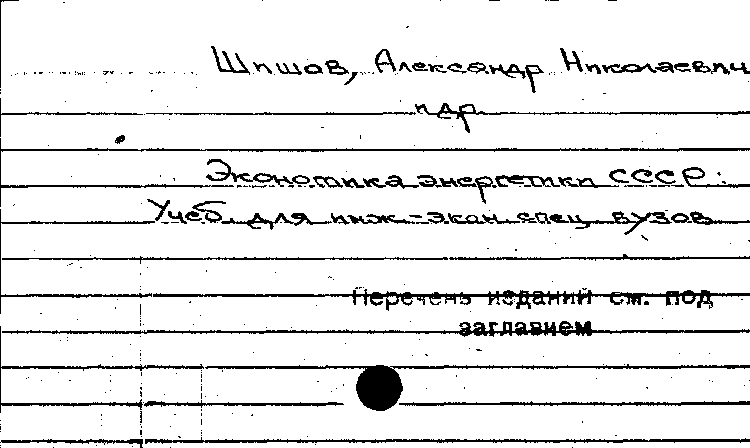 Шишов, Александр Николаевич
и др.
Экономика энергетики СССР:
Учеб. для инж.-экон. спец. вузов
Перечень изданий см. под
заглавием